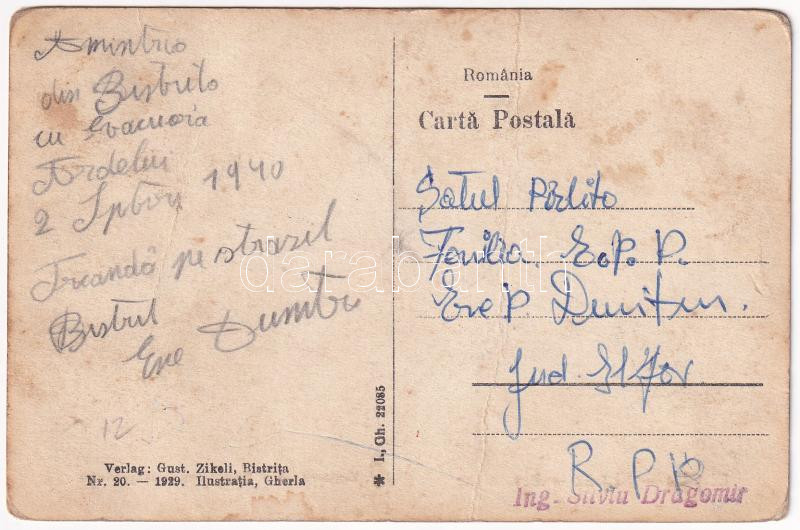 Amintire
din Bistrita
cu Evacuaria
Ardelui
2 Sptbri 1940
pe strazil
Bistrit
Ene Dumitr
12
Verlag: Gust. Zikeli, Bistrița
Nr. 20. — 1929. Ilustrația, Gherla
* I., Gh. 22085
România
Cartă Postală
Satul Pîrlito
Familia E. P. P.
Dumitru.
Jud. Ilfov
R. P. R
Ing. Silviu Dragomir
darabanth